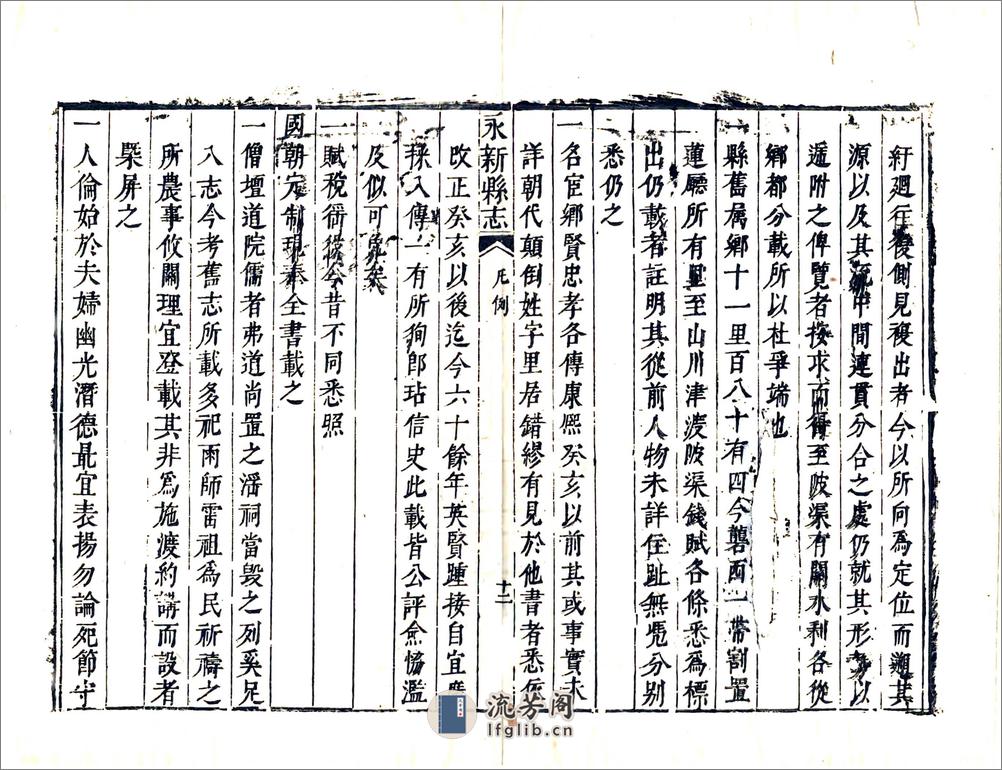 紆廻往復側見複出者今以所向為定位而遡其
源以及其流中間連貫分合之處仍就其形勢以
遞附之俾覽者按求而得至陂渠有關水利各從
鄉都分載所以杜爭端也
一縣舊属鄉十一里百八十有四今礱西一帶割置
蓮廳所有里至山川津渡陂渠錢賦各條悉為標
出仍載者註明其從前人物未詳住趾無凴分別
悉仍之
一名宦鄉賢忠孝各傳康熙癸亥以前其或事實未
詳朝代顛倒姓字里居錯繆有見於他書者悉依
永新縣志 凡例 十二
改正癸亥以後迄今六十餘年英賢踵接自宜廣
採入傳一有所狥郎玷信史此載皆公評僉恊濫
及似可免矣
一賦稅徭役今昔不同悉照
國朝定制現奉全書載之
一僧壇道院儒者弗道尚置之潘祠當毀之列奚足
入志今考舊志所載多祀雨師雷祖為民祈禱之
所農事攸關理宜登載其非為施渡約講而設者
槩屏之
一人倫始於夫婦幽光潛德最宜表揚勿論死節守
流芳阁
lfglib.cn